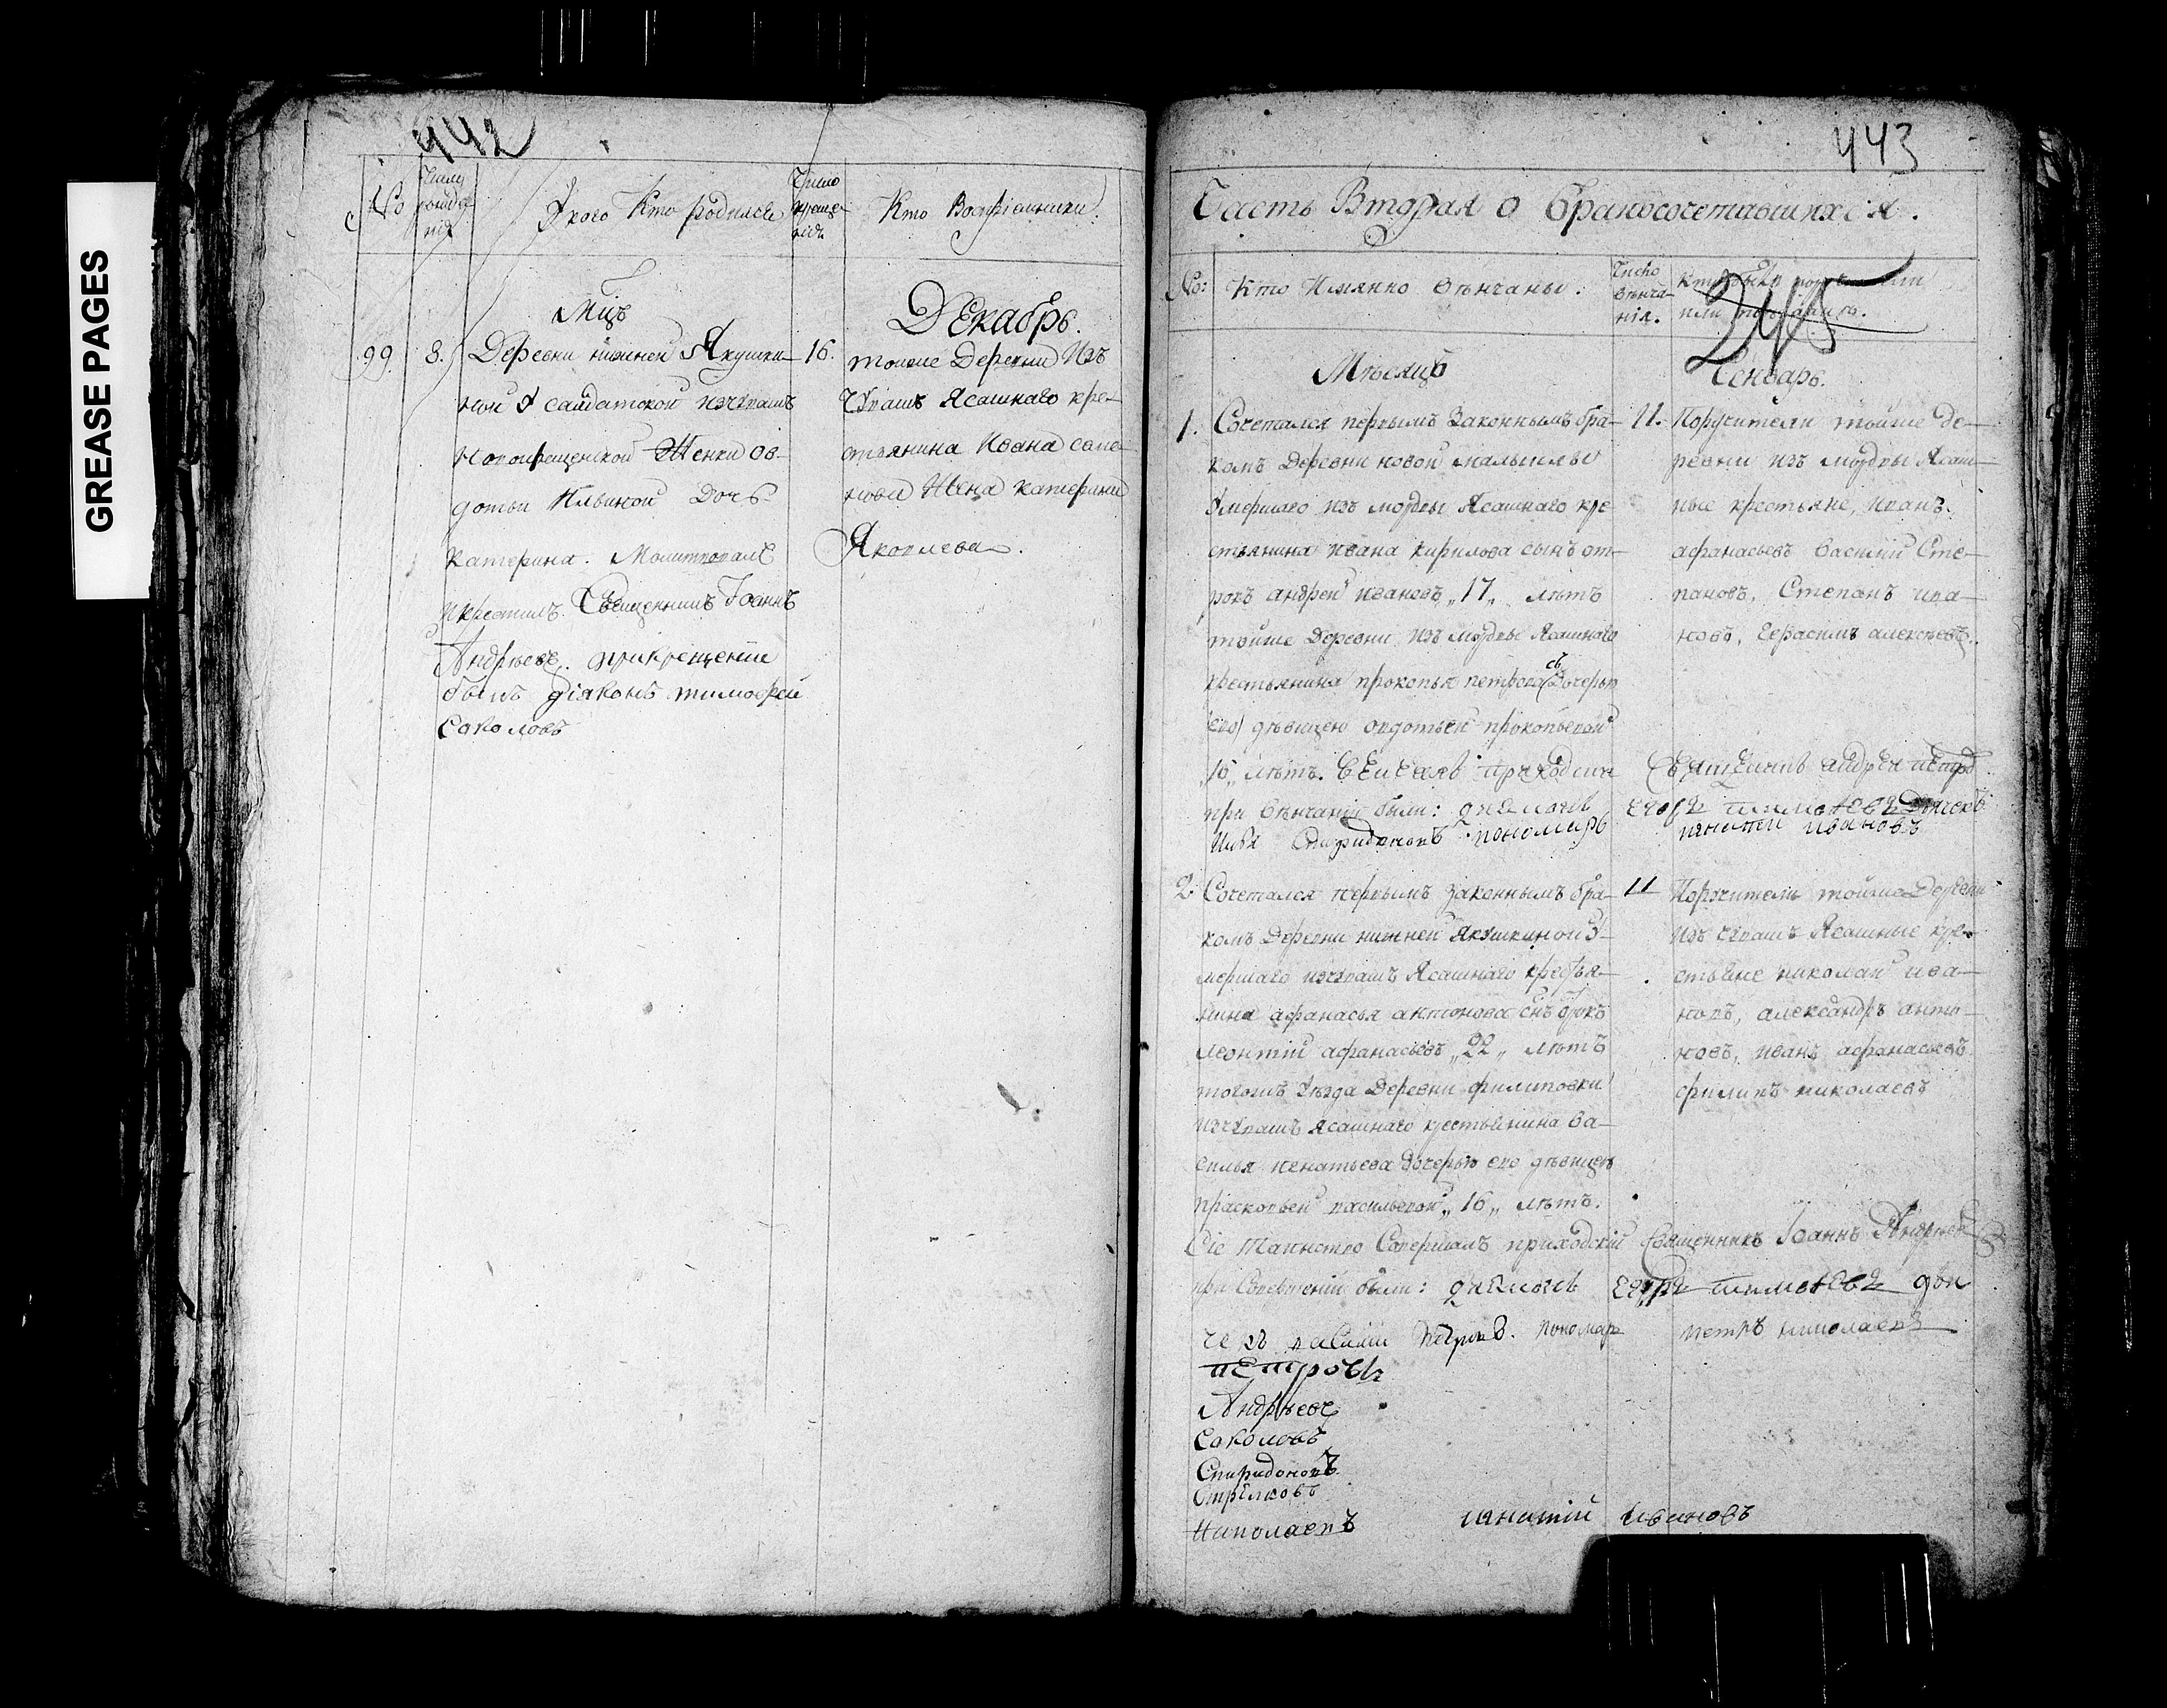 GREASE PAGES
442
No
Число рождения
У кого Кто родился
Число крещения
Кто Восприемники.
Мцъ Декабрь.
99. 8. Деревни нижней Якушки-
ной У салдатской изчувашъ
новокрещенской Женки Ов-
дотьи Ильиной Дочь
катерина. Молитвовалъ
икрестилъ Священникъ Іоаннъ
Андрѣевъ. прикрещеніи
былъ діяконъ тимофей
Соколовъ
16. тойже Деревни Изъ
Чувашъ Ясашнаго кре-
стьянина Ивана
Жена катерина
Яковлева.
443
Часть Вторая о бракосочетавшихся.
No: Кто Имянно вѣнчаны:
Число вѣнча-
нія.
245
Мѣсяцъ Генварь.
1. Сочетался первымъ Законнымъ бра-
комъ Деревни новой
Умершаго изъ мордвы Ясашнаго кре
стьянина ивана кирилова сынъ от-
рокъ андрей ивановъ „17„ лѣтъ
тойже Деревни изъ мордвы Ясашнаго
крестьянина прокопья петрова съ Дочерью
его дѣвицею овдотьей прокопьевой
„16„ лѣтъ.
при вѣнчаніи были:
Илья Спиридоновъ пономарь
11. Поручители тойже де-
ревни изъ мордвы Ясаш-
ные крестьяне, иванъ
афанасьевъ василий Сте-
пановъ, Степанъ ива-
новъ, герасимъ алексѣевъ.
Священникъ андрей петровъ
егоръ тимофеевъ Дьячокъ
игнатей ивановъ
2. Сочетался первымъ законнымъ бра-
комъ Деревни нижней Якушкиной У-
мершаго изчувашъ Ясашнаго крестья-
нина афанасья антонова снъ отрокъ
леонтий афанасьевъ „22„ лѣтъ
тогожъ Уѣзда Деревни филиповки
изчувашъ ясашнаго крестьянина ва-
силья игнатьева дочерью его дѣвицею
прасковьей васильевой „16„ лѣтъ.
Сіе Таинство Совершалъ приходскій Священникъ Іоаннъ Андрѣевъ
при Совершеніи были: егоръ тимофеевъ дья
чекъ василии Петровъ. пономарь петръ николаевъ
11 Поручители тойже Деревни
изъ чувашъ Ясашные кре-
стьяне николай ива-
новъ, александръ анто-
новъ, иванъ афанасьевъ
филипъ николаевъ
петровъ
Андрѣевъ
Соколовъ
Спиридоновъ
Стрелковъ
Николаевъ
игнатій ивановъ